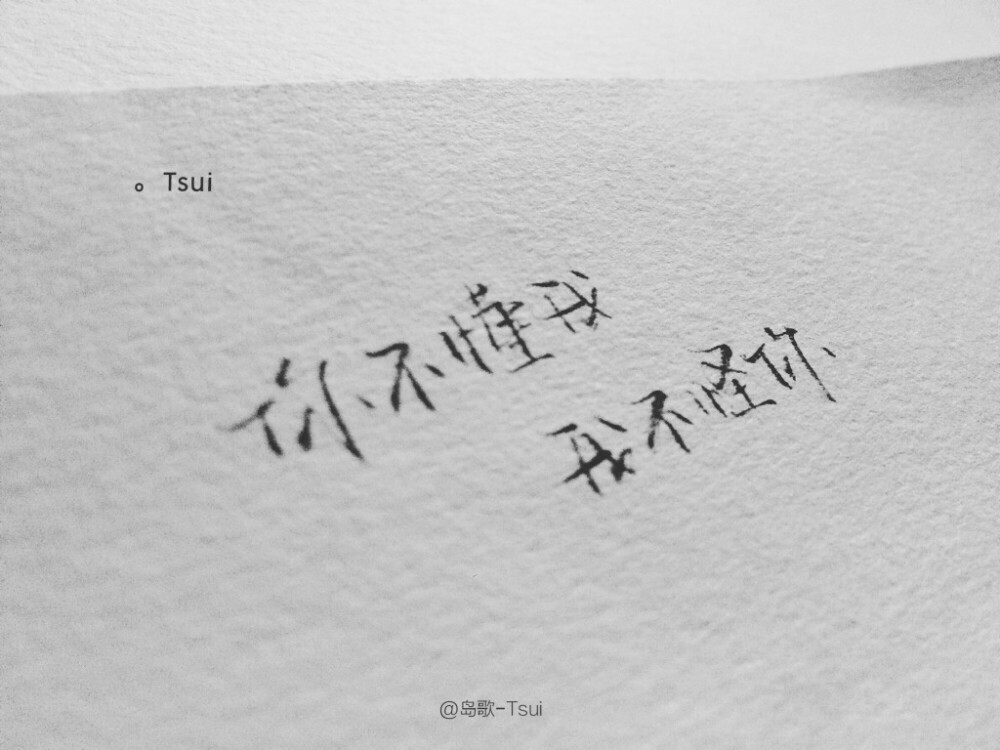 。Tsui
你不懂我
我不怪你
@岛歌-Tsui